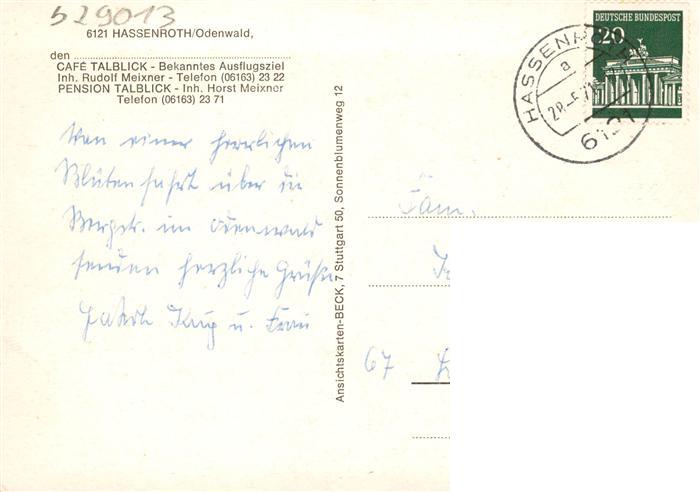 529013
6121 HASSENROTH/Odenwald,
den
CAFÉ TALBLICK - Bekanntes Ausflugsziel
Inh. Rudolf Meixner - Telefon (06163) 23 22
PENSION TALBLICK - Inh. Horst Meixner
Telefon (06163) 23 71
Von einer herrlichen
Blütenfahrt über die
Bergstr. im Odenwald
senden herzliche Grüße
u. Frau
Ansichtskarten-BECK, 7 Stuttgart 50, Sonnenblumenweg 12
DEUTSCHE BUNDESPOST
20
HASSENROTH
a
6121
Fam.
67